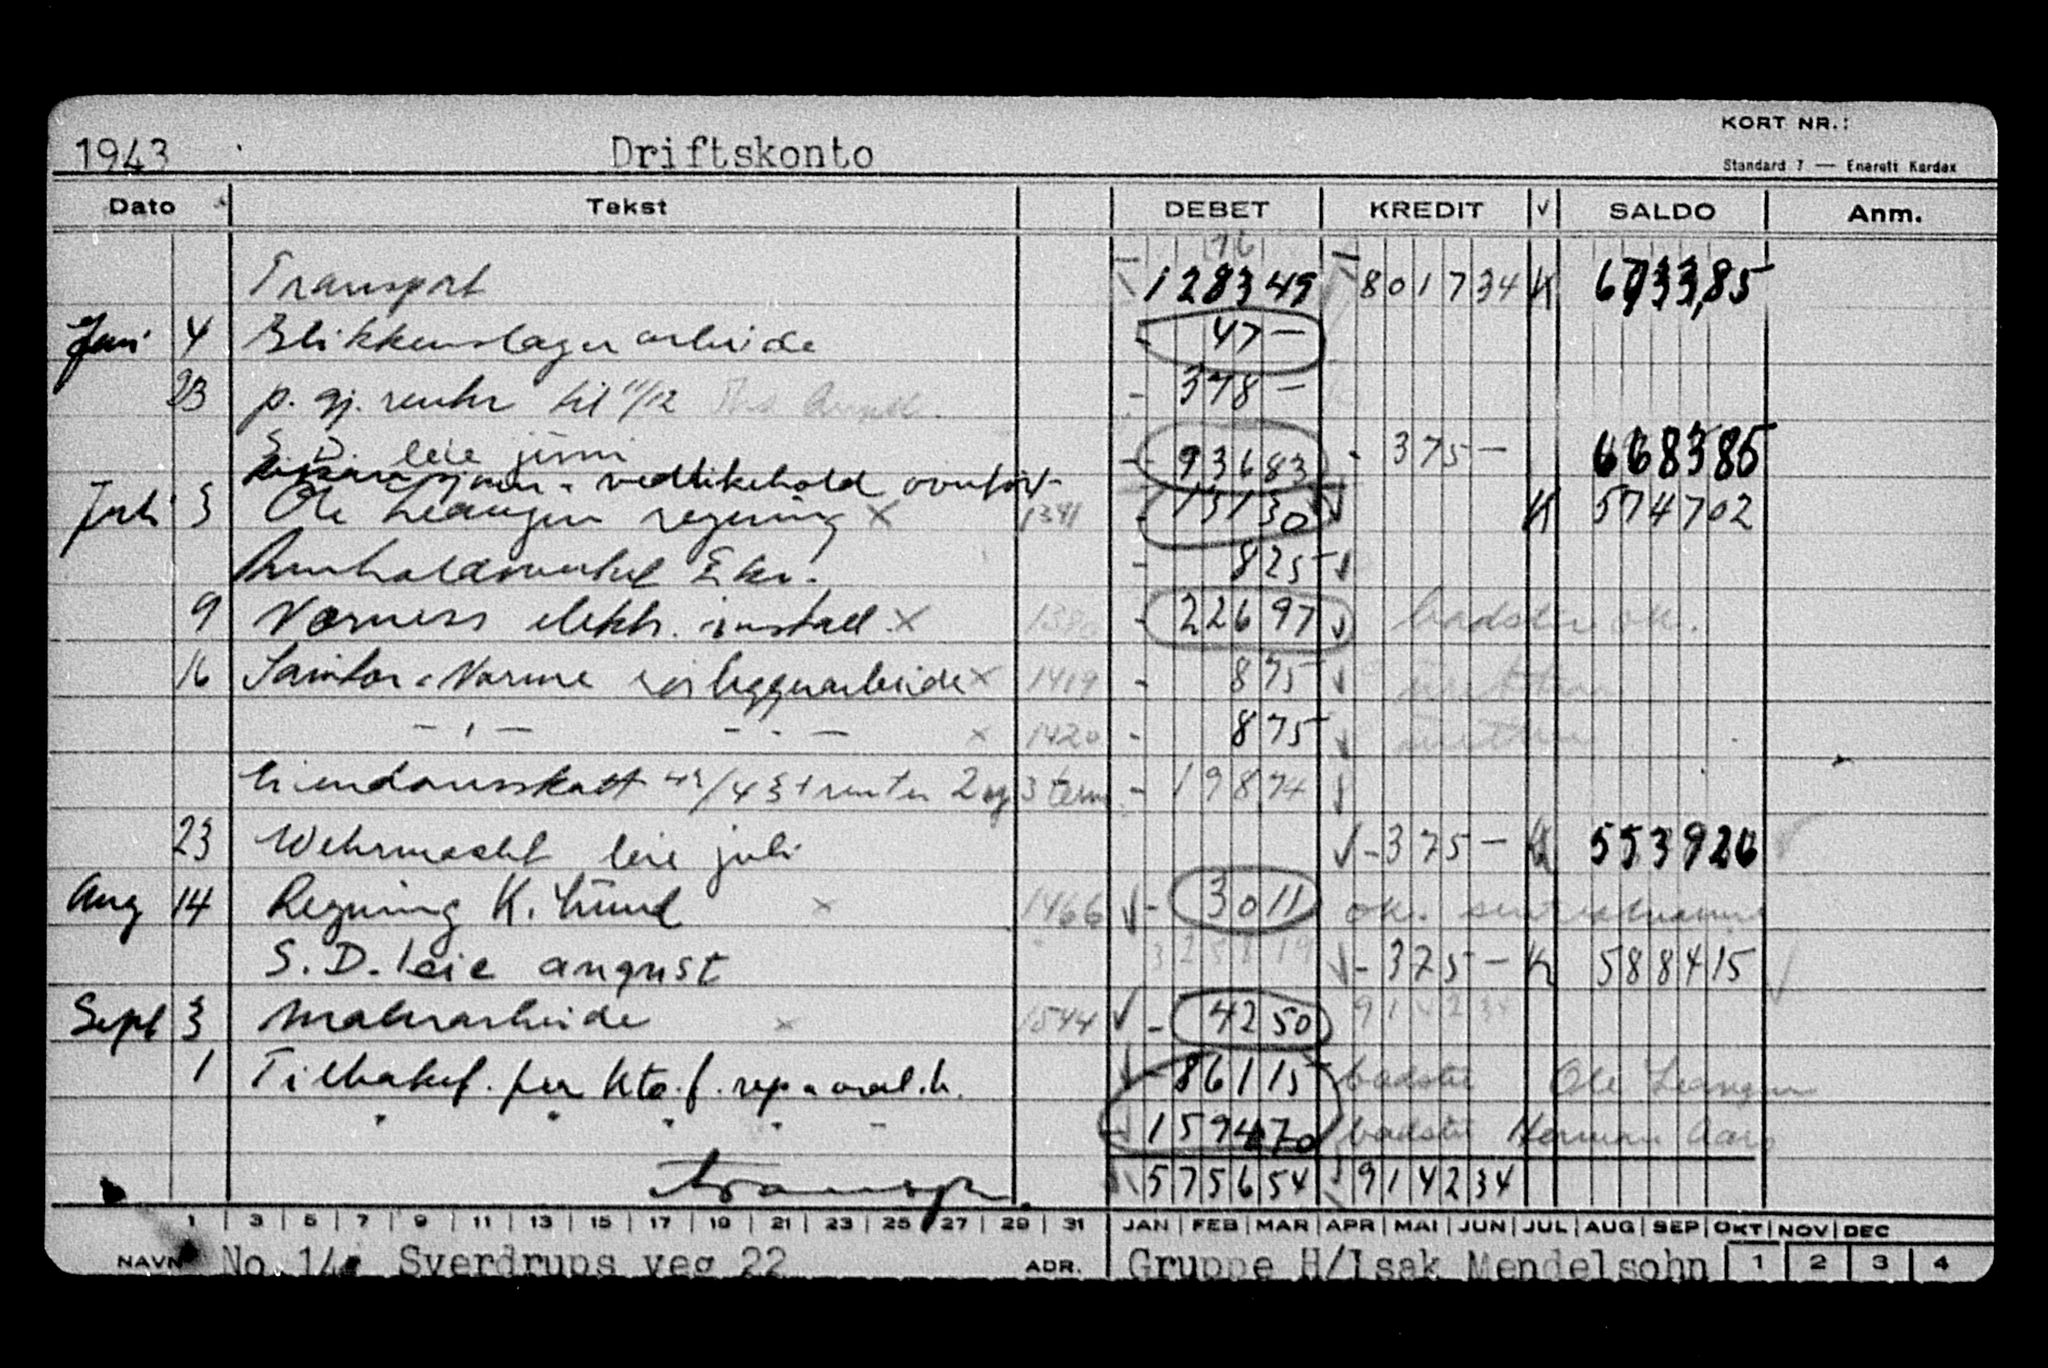 KORT NR.:
1943 Driftskonto
Standard 7 — Enerett Kardex
Dato Tekst DEBET KREDIT V SALDO Anm.
16
Transport 128349 801734 K 673385
Juni 4 Blikkenslagerarbeide 47 —
23 p. gj. renter til 11/12 378 —
S. D. leie juni 375 — 668385
vedlikehold overført 93683
Juli 3 Ole Leangen regning x 1341 13130 K 574702
Renholdsverket 825
9 Værness elektr. install. x 1380 22697 badstu ok.
16 Sanitær & Varme rørleggerarbeide x 1419 875
— " — — " — x 1420 875
Eiendomsskatt 42/43 + renter 2 og 3 term. 19874
23 Wehrmacht leie juli 375 — K 553926
Aug 14 Regning K. Lund x 1466 3011 ok. sentralvarme
325819
S. D. leie august 375 — K 588415
Sept 3 Malerarbeide x 1544 4250 914234
1 Tilbakef. per kto. f. rep & vedl.h. 86115 badstu Ole Leangen
" " " " " 159470 badstu Herman
transp. 575654 914234
1 3 5 7 9 11 13 15 17 19 21 23 25 27 29 31 JAN FEB MAR APR MAI JUN JUL AUG SEP OKT NOV DEC
NAVN No. 14. Sverdrups veg 22 ADR. Gruppe H/Isak Mendelsohn 1 2 3 4